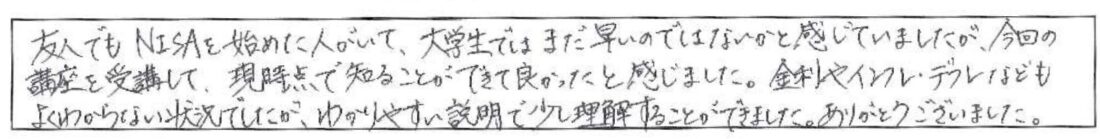 友人でもNISAを始めた人がいて、大学生ではまだ早いのではないかと感じていましたが、今回の
講座を受講して、現時点で知ることができて良かったと感じました。金利やインフレ・デフレなども
よくわからない状況でしたが、わかりやすい説明で少し理解することができました。ありがとうございました。